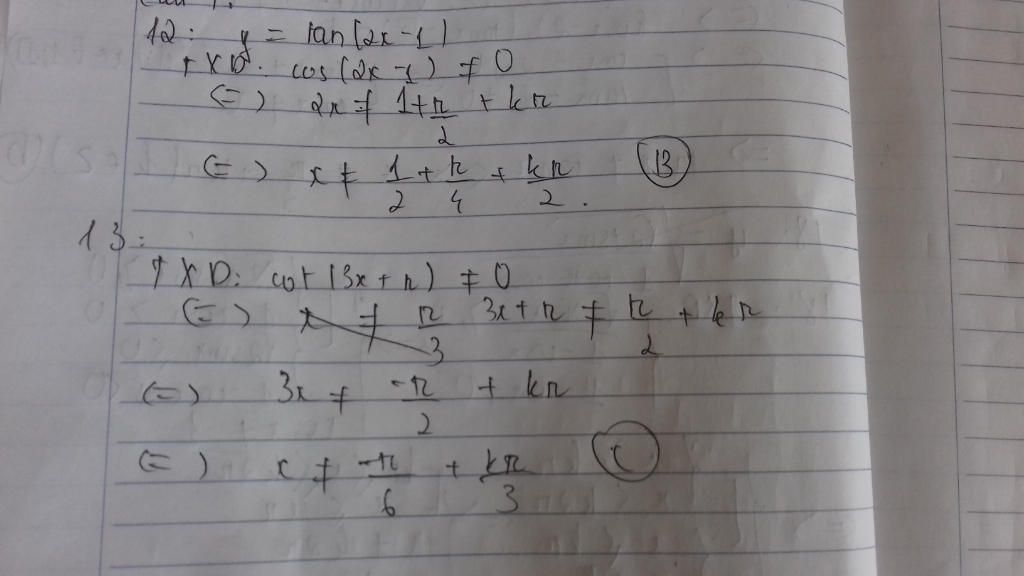 12: y = tan(2x-1)
TXD: cos(2x-1) ≠ 0
(=) 2x ≠ 1+π/2 + kπ
(=) x ≠ 1/2 + π/4 + kπ/2. B
13:
TXD: cot(3x+π) ≠ 0
(=) 3x+π ≠ π/2 + kπ
(=) 3x ≠ -π/2 + kπ
(=) x ≠ -π/6 + kπ/3 C